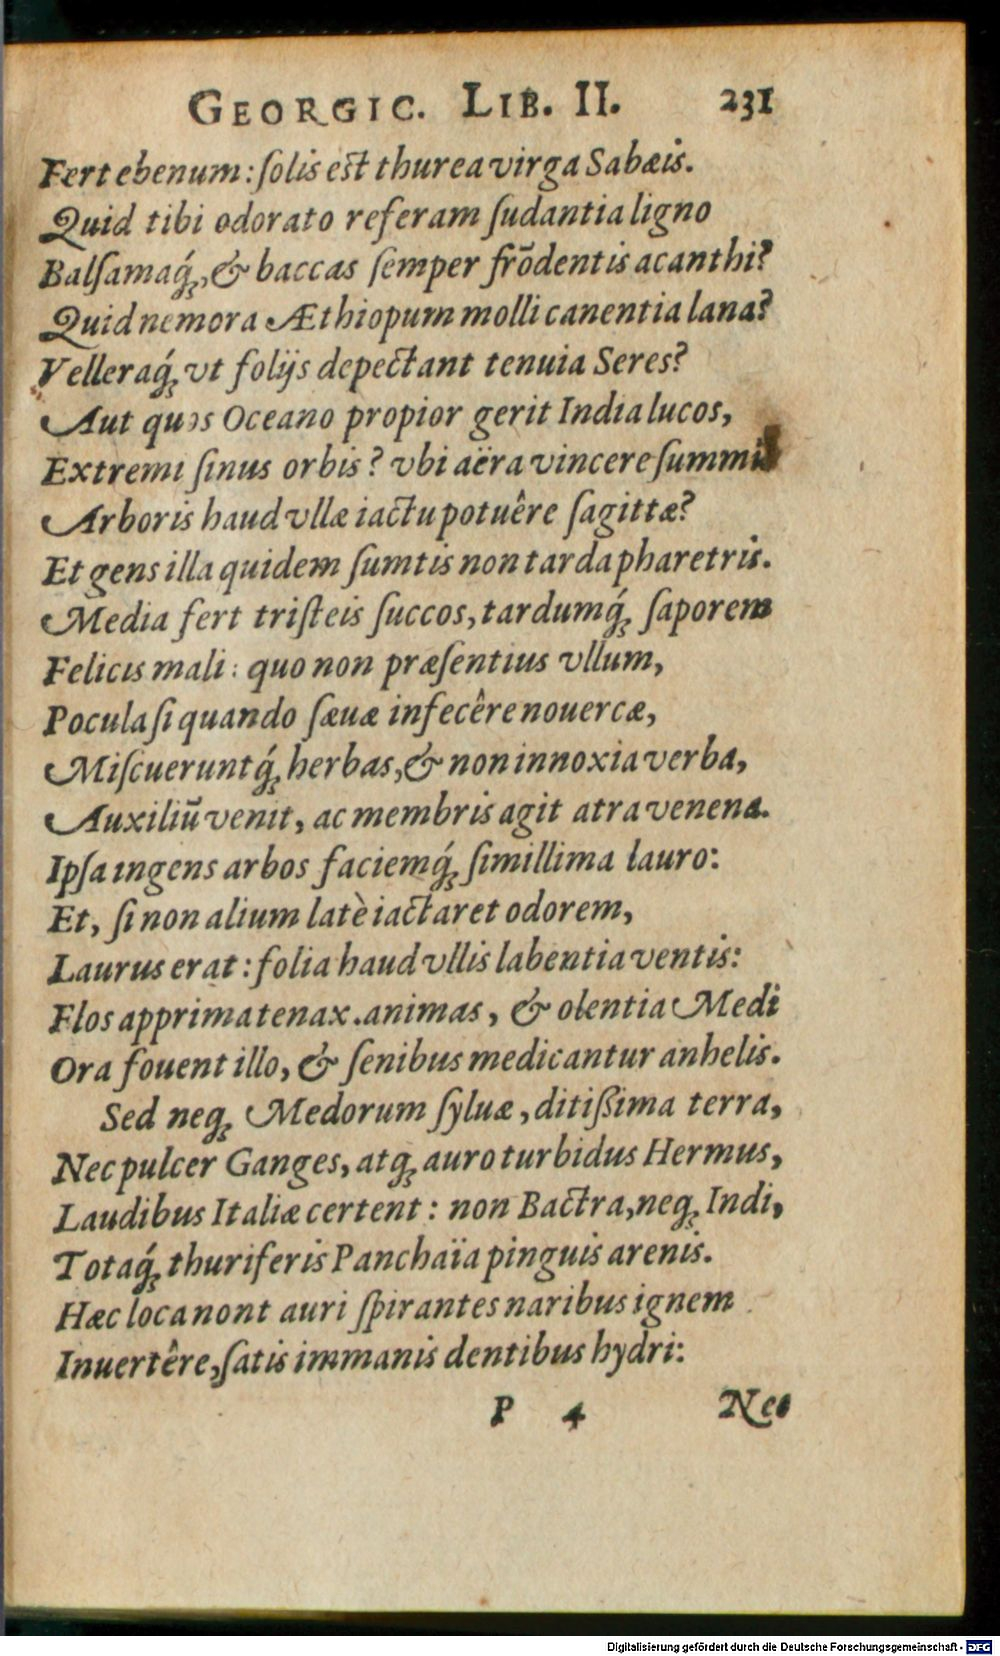 GEORGIC. LIB. II. 231
Fert ebenum: ſolis eſt thurea virga Sabæis.
Quid tibi odorato referam ſudantia ligno
Balſamaq́;, & baccas ſemper frõdentis acanthi?
Quid nemora Æthiopum molli canentia lana?
Velleraq́; vt folijs depectant tenuia Seres?
Aut quos Oceano propior gerit India lucos,
Extremi ſinus orbis? vbi aëra vincere ſummū
Arboris haud vllæ iactu potuêre ſagittæ?
Et gens illa quidem ſumtis non tarda pharetris.
Media fert triſteis ſuccos, tardumq́; ſaporem
Felicis mali: quo non præſentius vllum,
Pocula ſi quando ſæuæ infecêre nouercæ,
Miſcueruntq́; herbas, & non innoxia verba,
Auxiliū venit, ac membris agit atra venena.
Ipſa ingens arbos faciemq́; ſimillima lauro:
Et, ſi non alium latè iactaret odorem,
Laurus erat: folia haud vllis labentia ventis:
Flos apprima tenax. animas, & olentia Medi
Ora fouent illo, & ſenibus medicantur anhelis.
Sed neq; Medorum ſyluæ, ditißima terra,
Nec pulcer Ganges, atq; auro turbidus Hermus,
Laudibus Italiæ certent: non Bactra, neq; Indi,
Totaq́; thuriferis Panchaïa pinguis arenis.
Hæc loca nont auri ſpirantes naribus ignem
Inuertêre, ſatis immanis dentibus hydri:
P 4 Nec
Digitalisierung gefördert durch die Deutsche Forschungsgemeinschaft - DFG